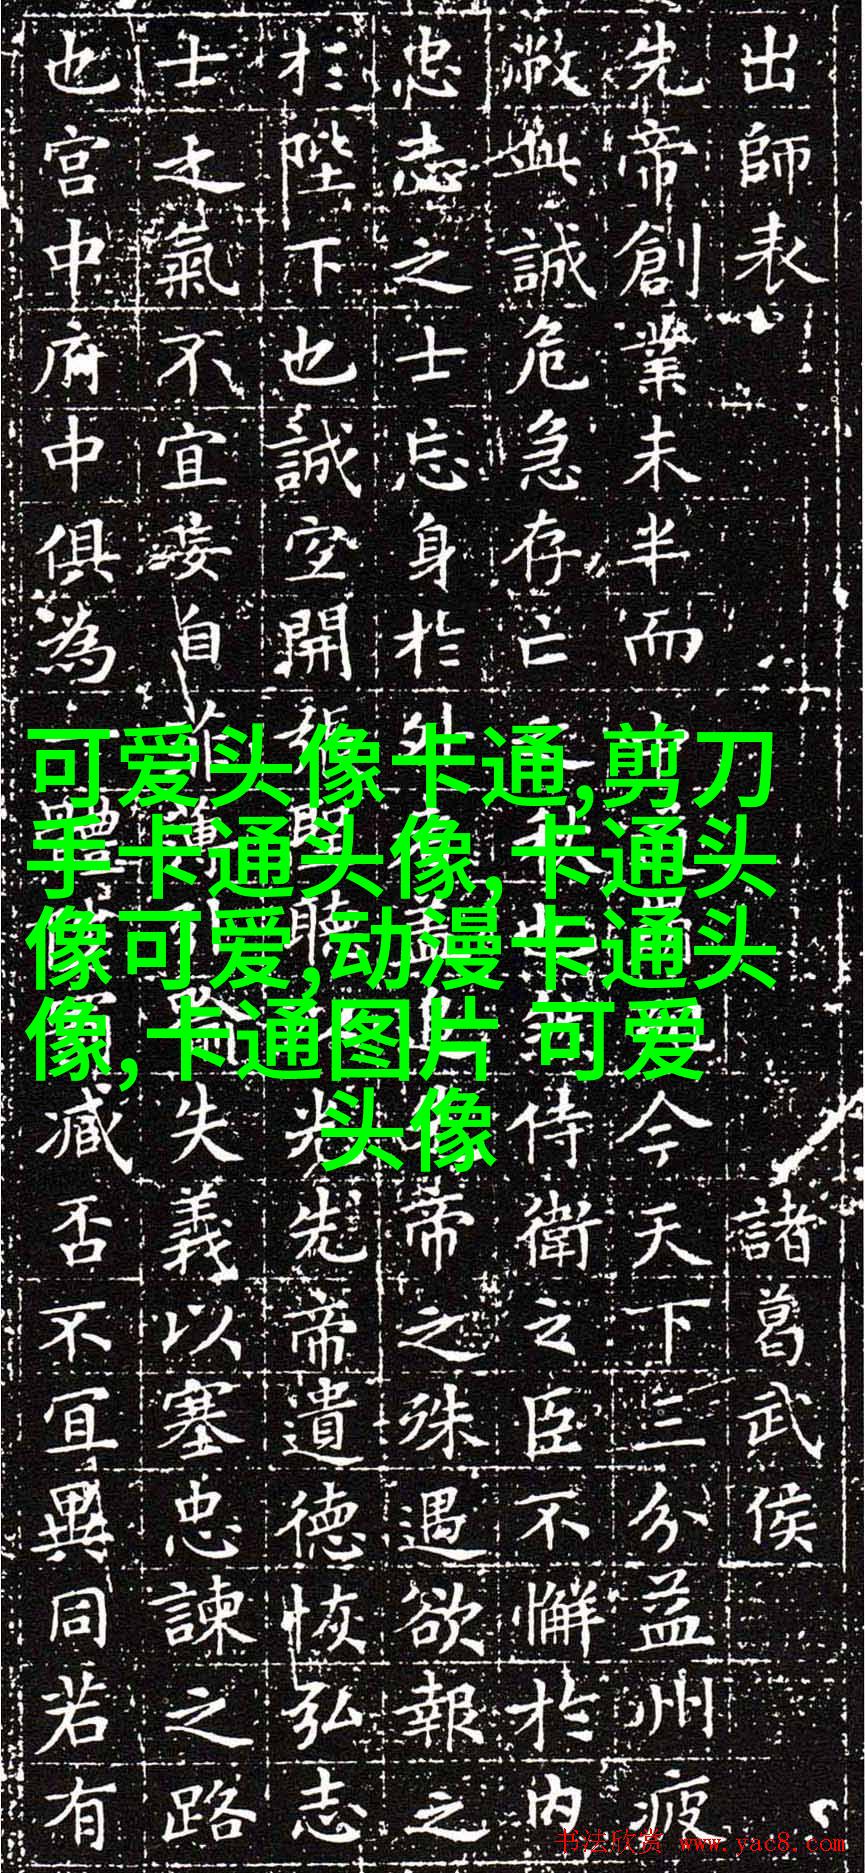 出師表 諸葛武侯
先帝創業未半而 今天下三分益州疲
敝此誠危急存亡 秋 侍衛之臣不懈於内
忠志之士忘身於外 帝之殊遇欲報之
於陛下也誠宜開張聖聽 光先帝遺德恢弘志
士之氣不宜妄自菲薄 失義以塞忠諫之路
也宮中府中俱為 體 臧否不宜異同若有
可爱头像卡通,剪刀
手卡通头像,卡通头
像可爱,动漫卡通头
像,卡通图片 可爱
头像
书法欣赏 www.yac8.com